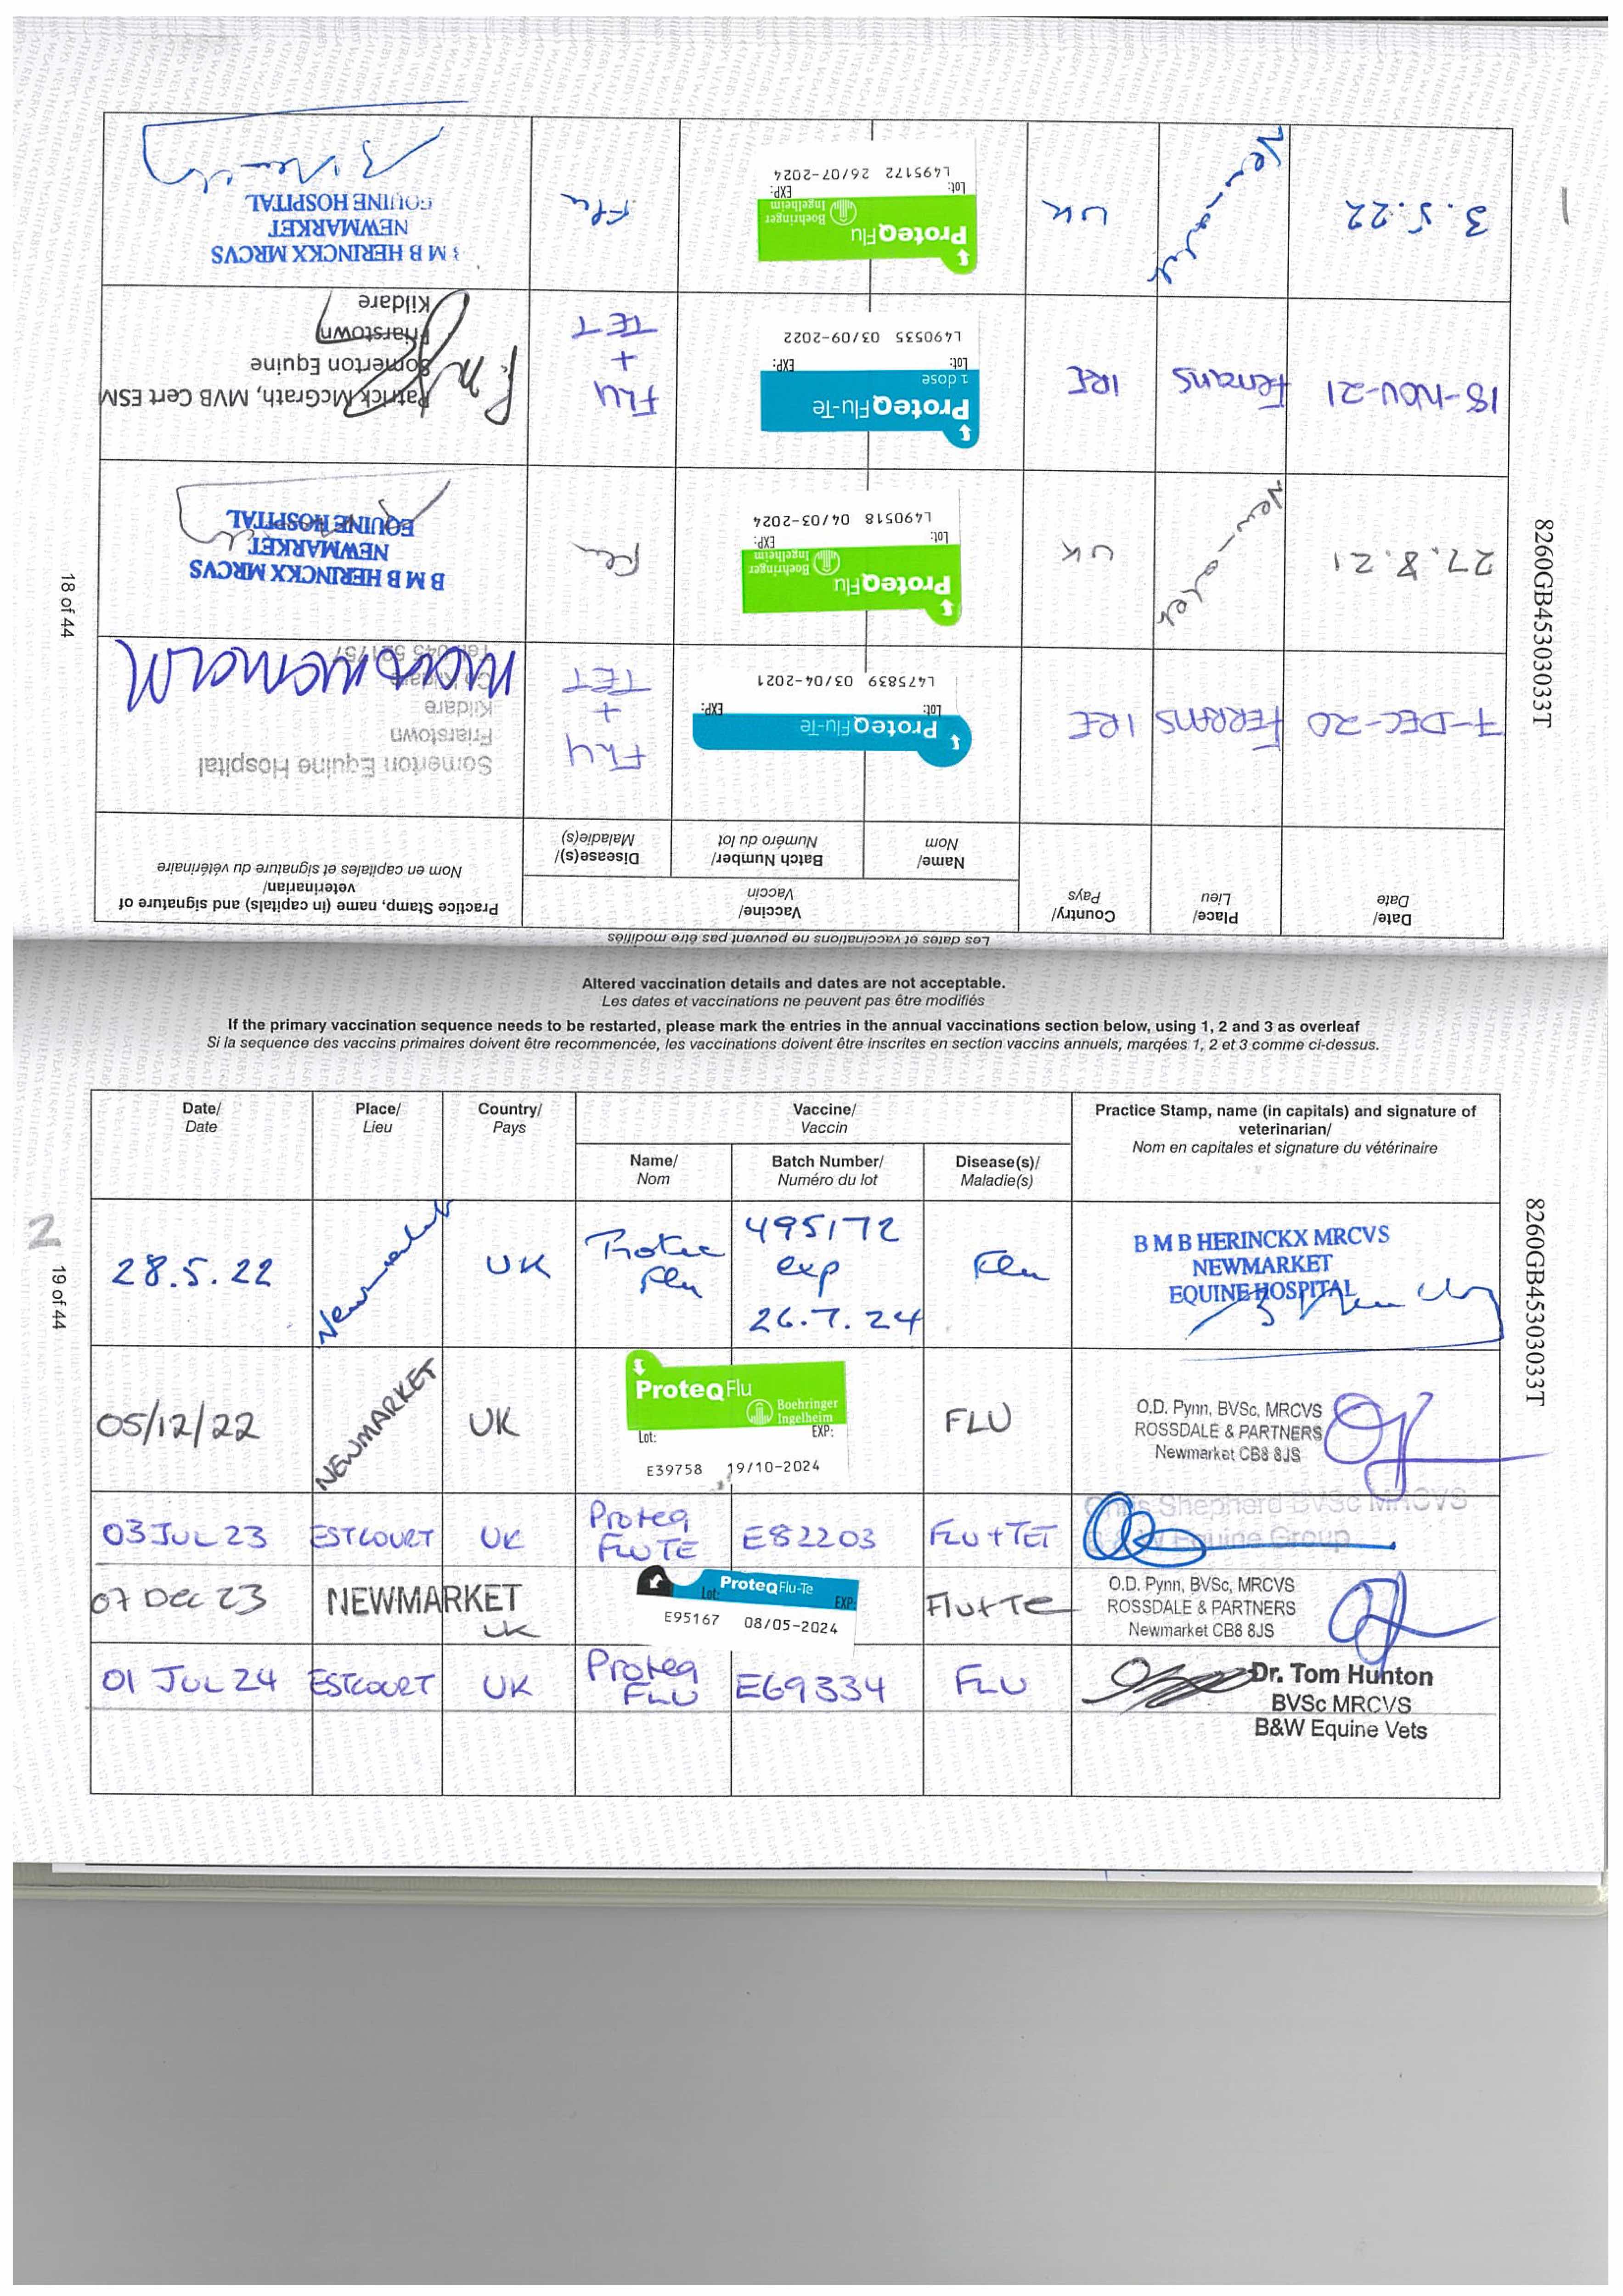 Les dates et vaccinations ne peuvent pas être modifiés
Date/
Date
Place/
Lieu
Country/
Pays
Vaccine/
Vaccin
Name/
Nom
Batch Number/
Numéro du lot
Disease(s)/
Maladie(s)
Practice Stamp, name (in capitals) and signature of
veterinarian/
Nom en capitales et signature du vétérinaire
7-DEC-20
FERRANS
IRE
ProteqFlu-Te
Lot:
EXP:
L475839 03/04-2021
FLU
+
TET
Somerton Equine Hospital
Friarstown
Kildare
Co Kildare
27.8.21
Newmarket
UK
ProteqFlu
Boehringer
Ingelheim
Lot:
EXP:
L490518 04/03-2024
Flu
B M B HERINCKX MRCVS
NEWMARKET
EQUINE HOSPITAL
18-NOV-21
Ferrans
IRE
ProteqFlu-Te
1 dose
Lot:
EXP:
L490535 03/09-2022
FLU
+
TET
Patrick McGrath, MVB Cert ESM
Somerton Equine
Friarstown
Kildare
3.5.22
Newmarket
UK
ProteqFlu
Boehringer
Ingelheim
Lot:
EXP:
L495172 26/07-2024
Flu
B M B HERINCKX MRCVS
NEWMARKET
EQUINE HOSPITAL
1
18 of 44
8260GB45303033T
Altered vaccination details and dates are not acceptable.
Les dates et vaccinations ne peuvent pas être modifiés
If the primary vaccination sequence needs to be restarted, please mark the entries in the annual vaccinations section below, using 1, 2 and 3 as overleaf
Si la sequence des vaccins primaires doivent être recommencée, les vaccinations doivent être inscrites en section vaccins annuels, marqées 1, 2 et 3 comme ci-dessus.
Date/
Date
Place/
Lieu
Country/
Pays
Vaccine/
Vaccin
Name/
Nom
Batch Number/
Numéro du lot
Disease(s)/
Maladie(s)
Practice Stamp, name (in capitals) and signature of
veterinarian/
Nom en capitales et signature du vétérinaire
2
28.5.22
Newmarket
UK
Proteq
Flu
495172
exp
26.7.24
Flu
B M B HERINCKX MRCVS
NEWMARKET
EQUINE HOSPITAL
05/12/22
NEWMARKET
UK
ProteqFlu
Boehringer
Ingelheim
Lot:
EXP:
E39758 19/10-2024
FLU
O.D. Pynn, BVSc, MRCVS
ROSSDALE & PARTNERS
Newmarket CB8 8JS
03 JUL 23
ESTCOURT
UK
Proteq
FLUTE
E82203
FLU+TET
Chris Shepherd BVSc MRCVS
B&W Equine Group
07 Dec 23
NEWMARKET
UK
ProteqFlu-Te
Lot:
EXP:
E95167 08/05-2024
Flu+Te
O.D. Pynn, BVSc, MRCVS
ROSSDALE & PARTNERS
Newmarket CB8 8JS
01 JUL 24
ESTCOURT
UK
Proteq
FLU
E69334
FLU
Dr. Tom Hunton
BVSc MRCVS
B&W Equine Vets
19 of 44
8260GB45303033T